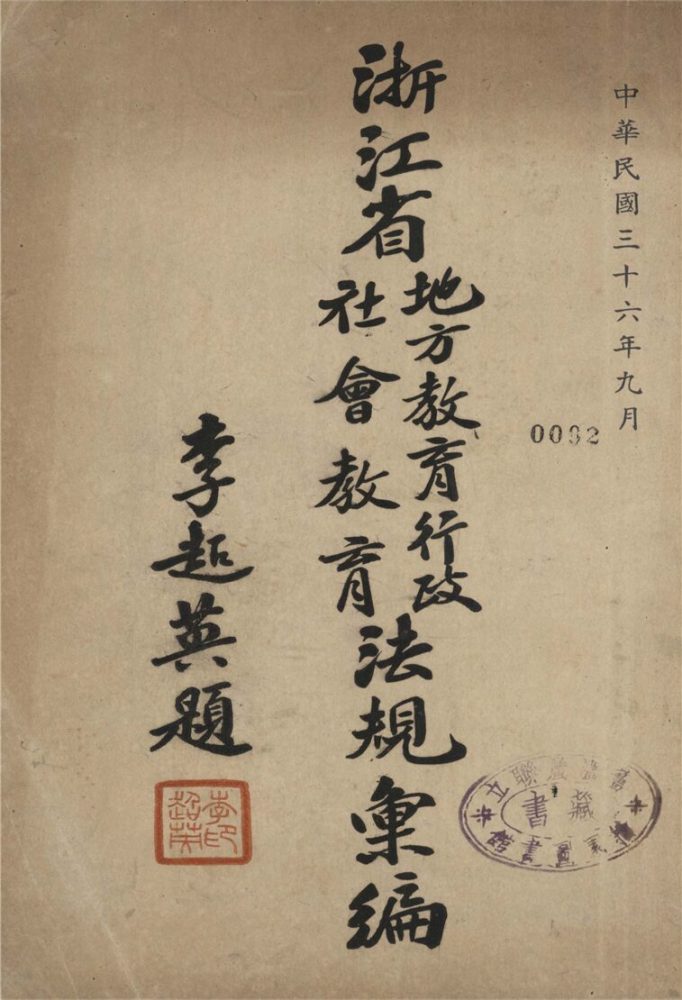 中華民國三十六年九月
0092
浙江省
地方教育行政
社會教育
法規彙編
李超英題
李印
超英
藏書